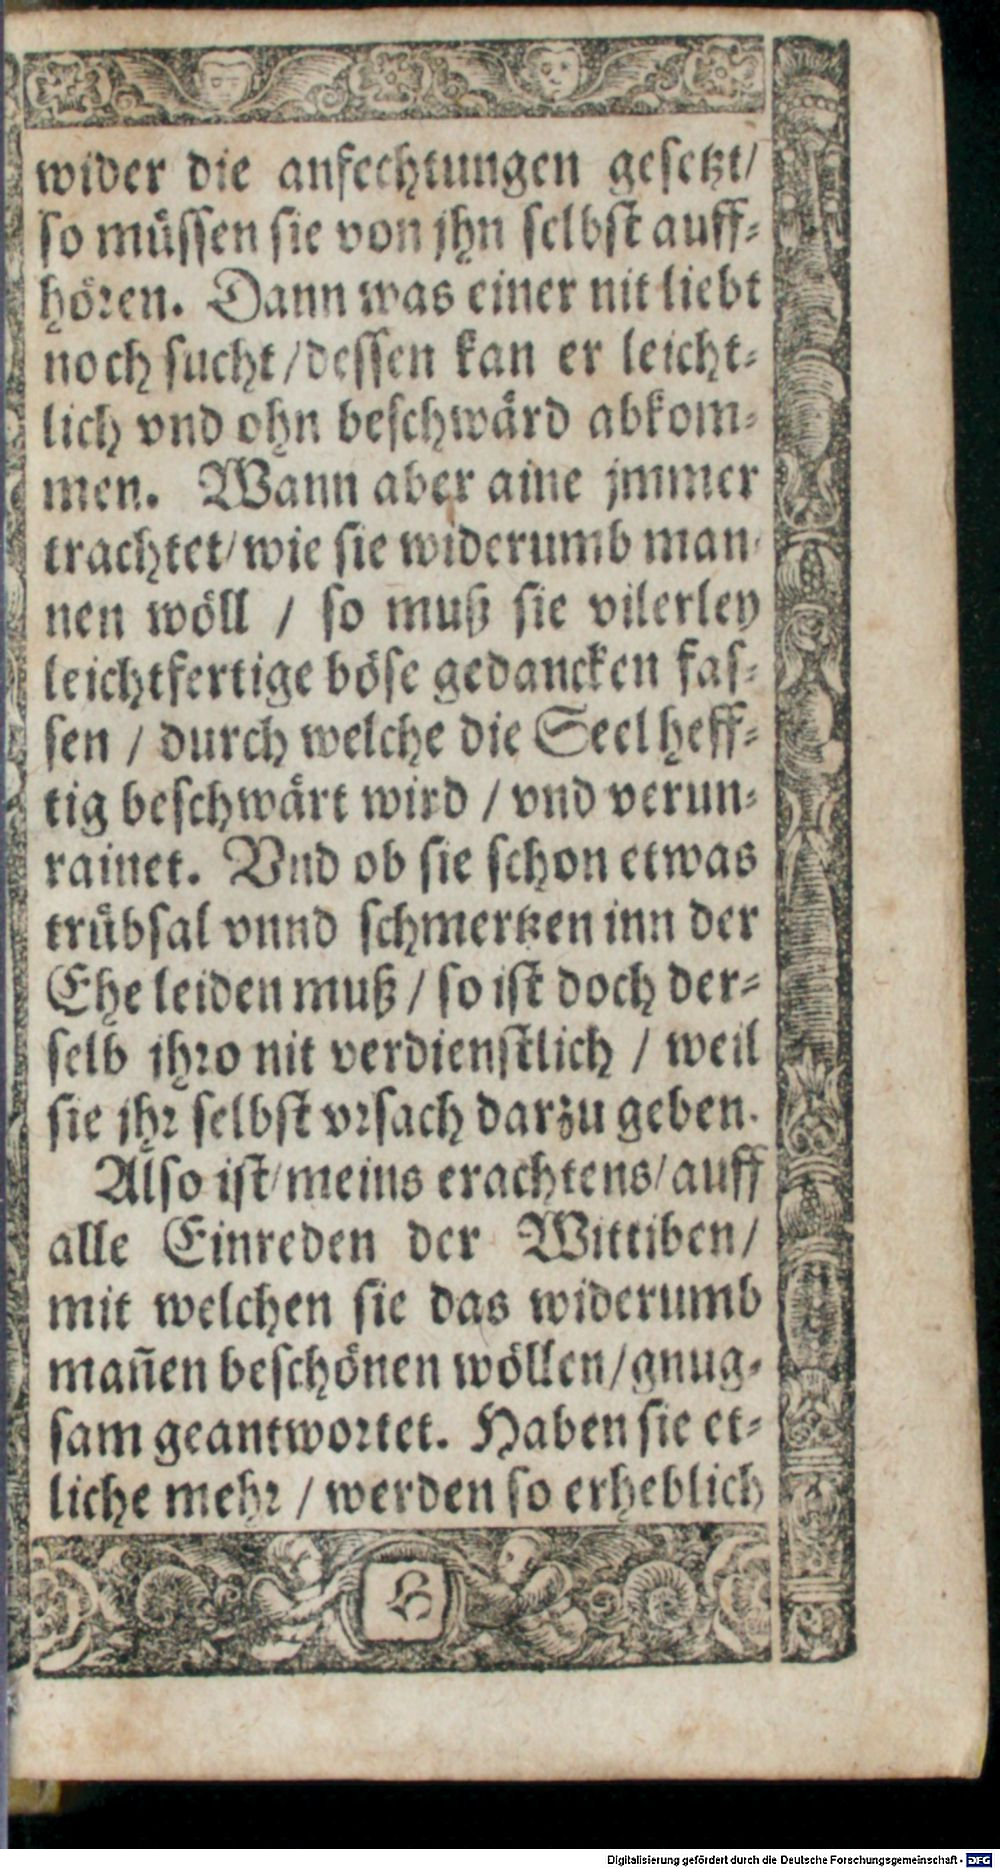 wider die anfechtungen gesetzt/
so müssen sie von jhn selbst auff-
hören. Dann was einer nit liebt
noch sucht / dessen kan er leicht-
lich vnd ohn beschwärd abkom-
men. Wann aber aine jmmer
trachtet / wie sie widerumb man-
nen wöll / so muß sie vilerley
leichtfertige böse gedancken fas-
sen / durch welche die Seel heff-
tig beschwärt wird / vnd verun-
rainet. Vnd ob sie schon etwas
trübsal vnnd schmertzen inn der
Ehe leiden muß / so ist doch der-
selb ihro nit verdienstlich / weil
sie jhr selbst vrsach darzu geben.
Also ist / meins erachtens / auff
alle Einreden der Wittiben /
mit welchen sie das widerumb
mañen beschönen wöllen / gnug-
sam geantwortet. Haben sie et-
liche mehr / werden so erheblich
Digitalisierung gefördert durch die Deutsche Forschungsgemeinschaft - DFG